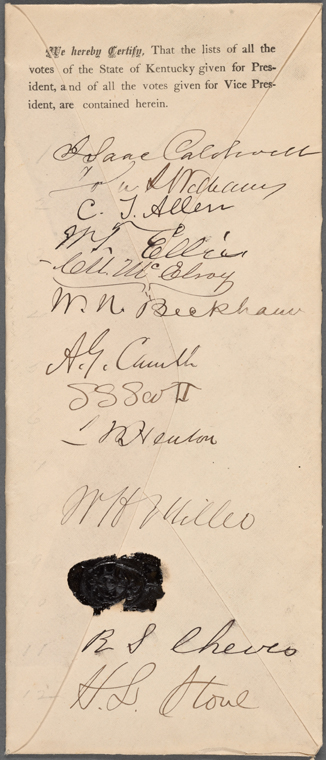 We hereby Certify, That the lists of all the
votes of the State of Kentucky given for Pres-
ident, and of all the votes given for Vice Pres-
ident, are contained herein.
Isaac Caldwell
Williams
C. T. Allen
Ellis
McElroy
W. N. Beckham
A. G. Caruth
Scott
Henton
W H Miller
R S
H. L. Stone